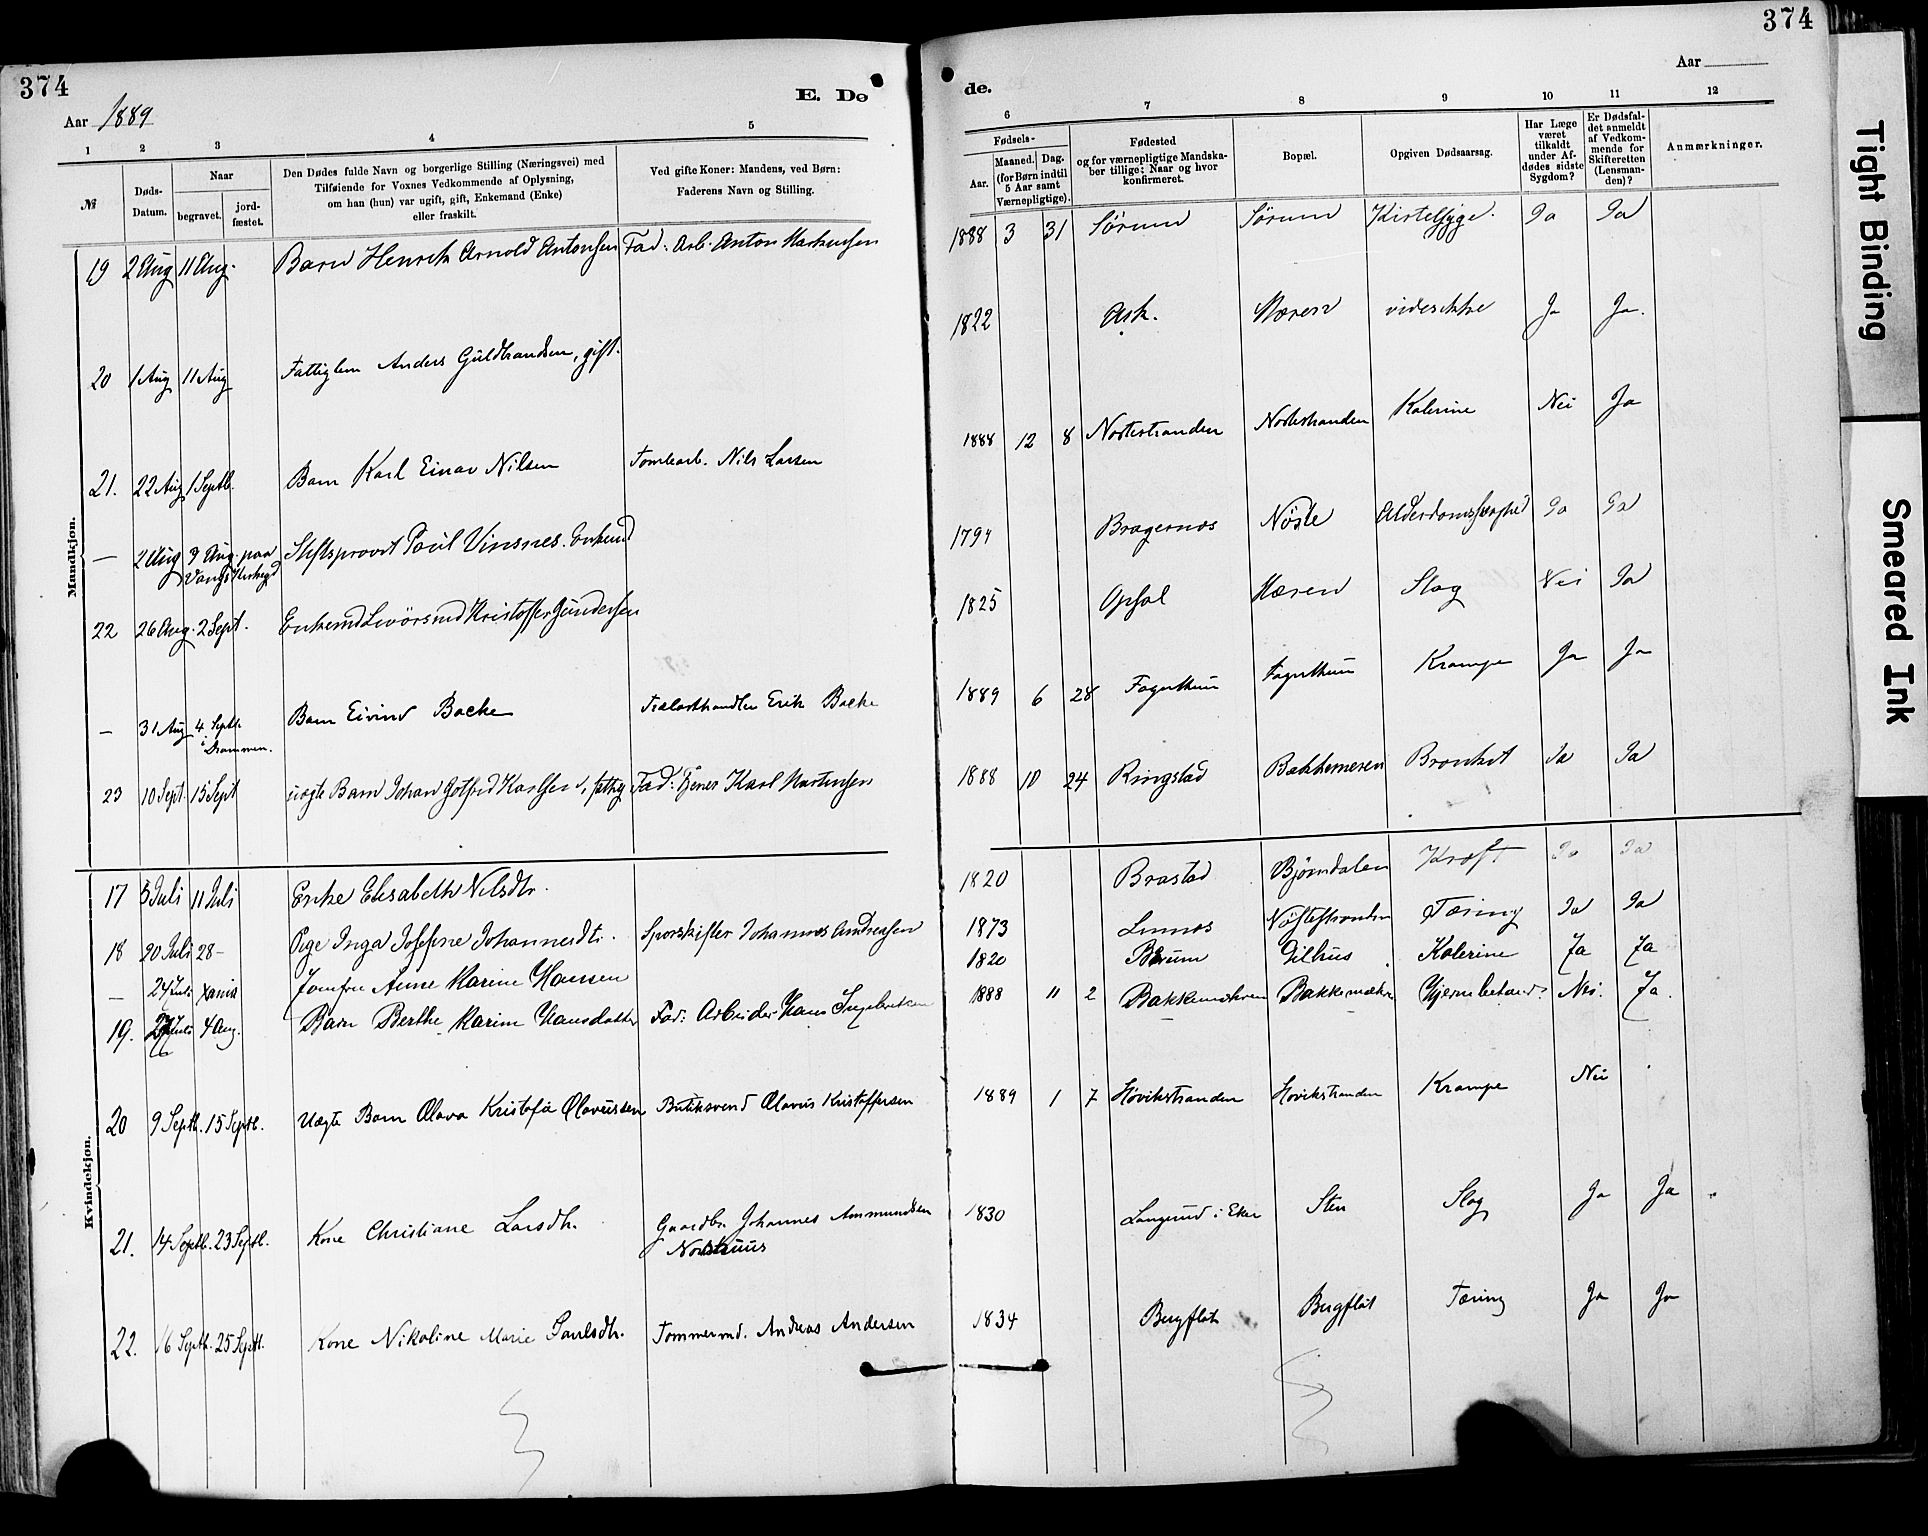 374
Aar 1889
E. Dø
1 2 3 4 5
№
Døds-Datum.
Naar
begravet.
jord-fæstet.
Den Dødes fulde Navn og borgerlige Stilling (Næringsvei) med
Tilføiende for Voxnes Vedkommende af Oplysning,
om han (hun) var ugift, gift, Enkemand (Enke)
eller fraskilt.
Ved gifte Koner: Mandens, ved Børn:
Faderens Navn og Stilling.
Mandkjøn.
19 2 Aug 11 Aug. Barn Henrik Arnold Antonsen Fad: Arb. Anton
20 1 Aug 11 Aug Fattiglem Anders Guldbrandsen, gift.
21. 22 Aug 1 Septb. Barn Karl Einar Nilsen Tomtearb. Nils Larsen
— 2 Aug 9 Aug. paa Stiftsprovst Poul Vinsnes. Enkemd
Vangs Kirkegd
22 26 Aug. 2 Sept. Enkemd Kristoffer Gundersen
— 31 Aug 4. Septb. Barn Eivind Backe Erik Backe
i Drammen.
23 10 Sept. 15 Sept uægte Barn Johan Gotfred Karlsen, fattig Fad: Tjener Karl Martinsen
Kvindekjøn.
17 5 Juli 11 Juli Enke Elisabeth Nilsdtr.
18 20 Juli 28 — Pige Inga Josefine Johannesdtr. Sporskifter Johannes Andresen
— 24 Juli Xania Jomfru Anne Marine Hansen
19. 27 Juli 4 Aug. Barn Berthe Marine Hansdatter Fad: Arbeider Hans Ingebretsen
20 9 Septb. 15 Septb. Uægte Barn Olava Kristofa Olavussen Butiksvend Olavus Kristoffersen
21. 14 Septb. 23 Septb. Kone Christiane Larsdtr. Gaardbr. Johannes Ammundsen
22. 16 Septb. 25 Septb. Kone Nikoline Marie Paulsdtr. Tømmermd. Andreas Andersen
374
Aar
de.
6 7 8 9 10 11 12
Fødsels-
Aar.
Maaned. Dag.
(for Børn indtil
5 Aar samt
Værnepligtige).
Fødested
og for værnepligtige Mandska-
ber tillige: Naar og hvor
konfirmeret.
Bopæl.
Opgiven Dødsaarsag.
Har Læge
været
tilkaldt
under Af-
dødes sidste
Sygdom?
Er Dødsfal-
det anmeldt
af Vedkom-
mende for
Skifteretten
(Lensman-
den)?
Anmærkninger.
1888 3 31 Sørum Sørum Kirtelsyge. Ja Ja
1822 Ask. Mæren vides ikke Ja Ja.
1888 12 8 Nøstestranden Nøstestranden Kolerine Nei Ja
1794 Bragernæs Nøste Alderdomssvaghed Ja Ja
1825 Opsal Mæren Slag Nei Ja
1889 6 28 Fagertun Fagertun Krampe Ja Ja
1888 10 24 Ringstad Bakkemeren Bronkit Ja Ja
1820 Brastad Bjørndalen Kræft Ja Ja
1873 Linnes Nøstestranden Tæring Ja Ja
1820 Bærum Gilhus Kolerine Ja Ja
1888 11 2 Bakkemæren Bakkemæren Hjernebetænd. Nei. Ja.
1889 1 7 Høvikstranden Høvikstranden Krampe Nei
1830 Langerud i Eker Sten Slag Ja Ja
1834 Bergflöt Bergflöt Tæring Ja Ja
Tight Binding
Smeared Ink